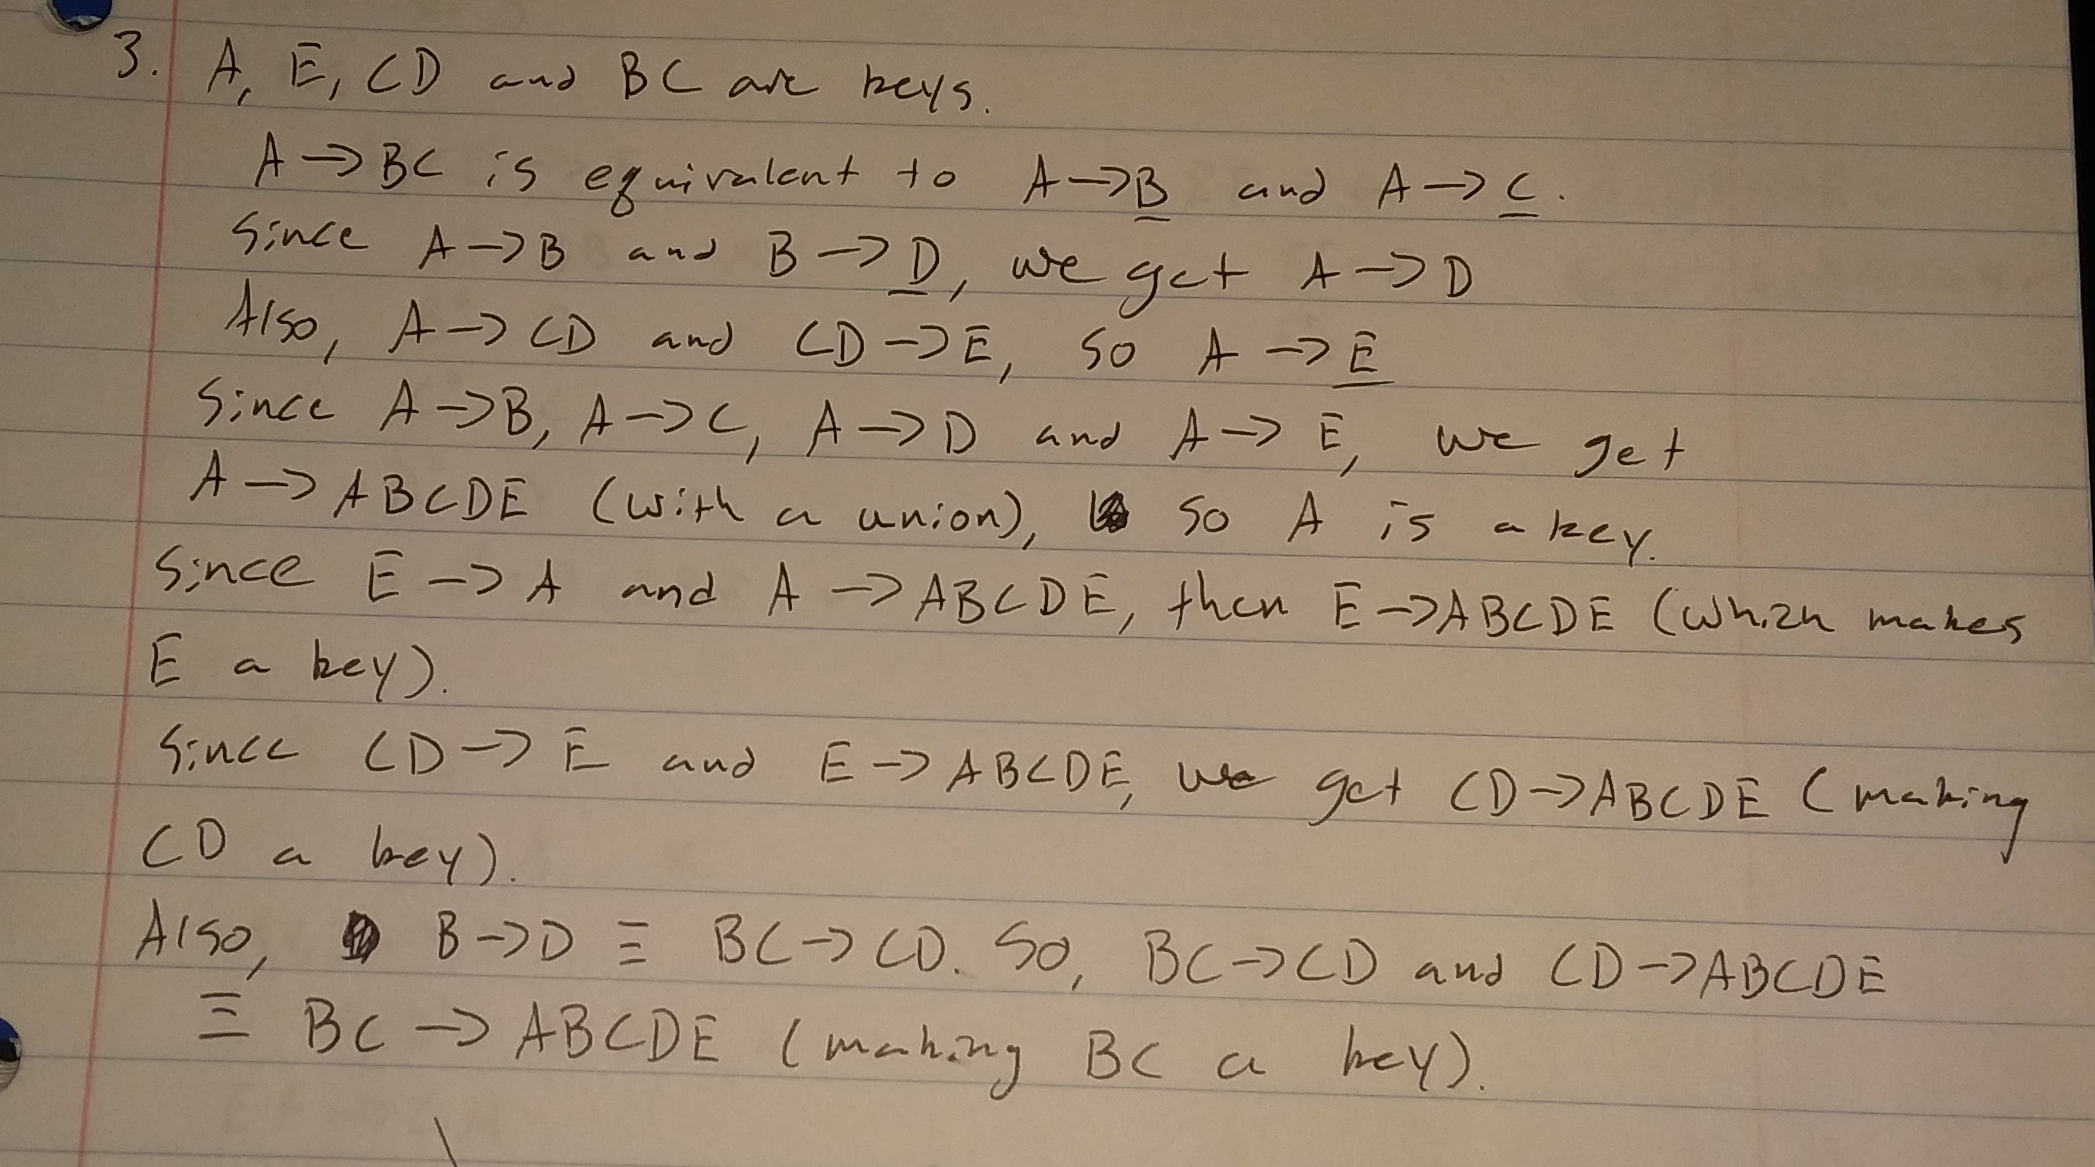 3. A, E, CD and BC are keys.
A → BC is equivalent to A → B and A → C.
Since A → B and B → D, we get A → D
Also, A → CD and CD → E, so A → E
Since A → B, A → C, A → D and A → E, we get
A → ABCDE (with a union), so A is a key.
Since E → A and A → ABCDE, then E → ABCDE (which makes
E a key).
Since CD → E and E → ABCDE, we get CD → ABCDE (making
CD a key).
Also, B → D ≡ BC → CD. So, BC → CD and CD → ABCDE
≡ BC → ABCDE (making BC a key).